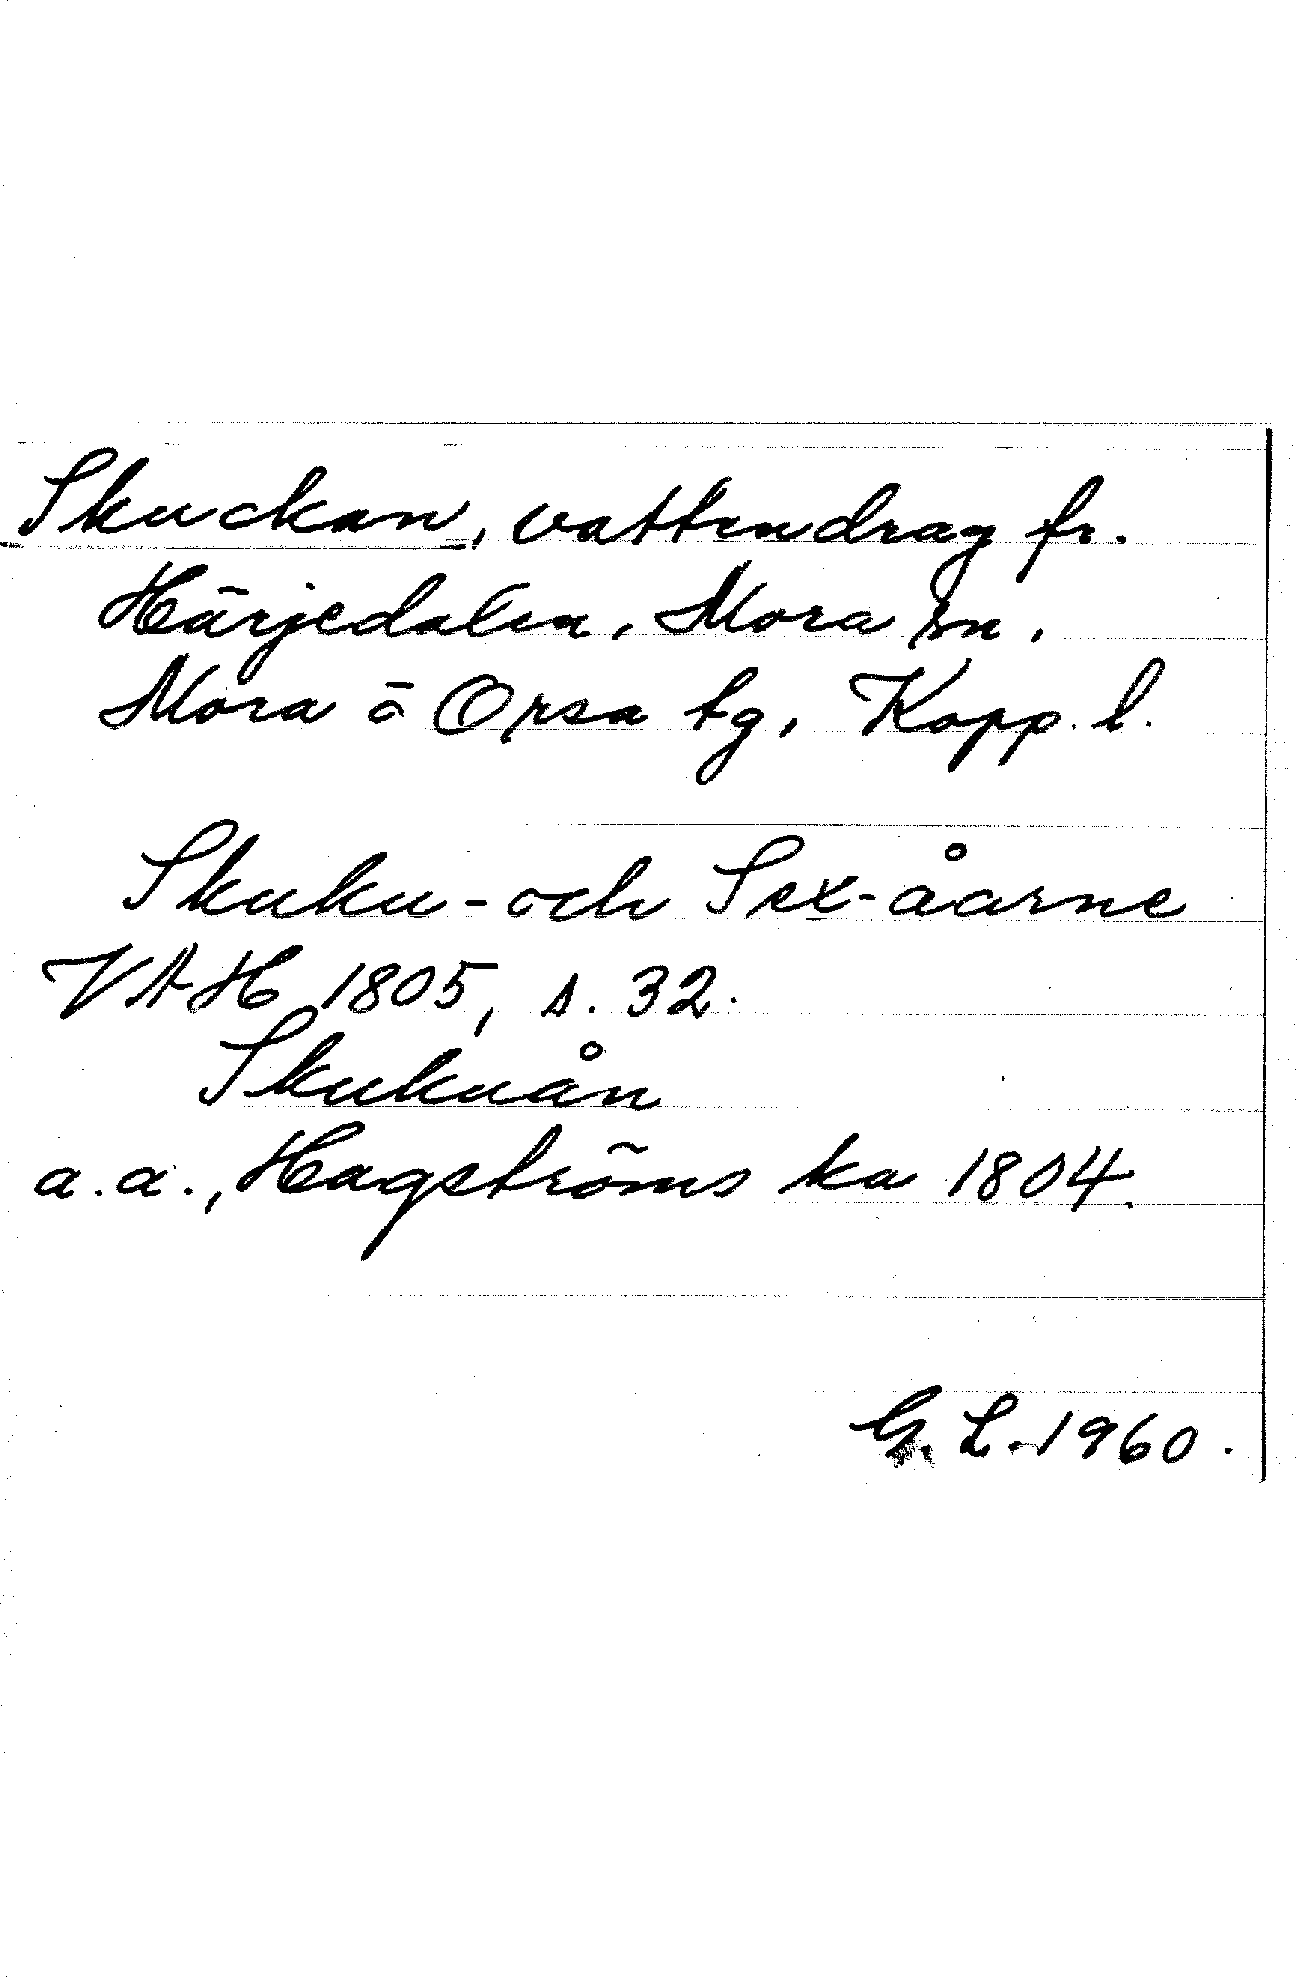 Skuckan, vattendrag fr.
Härjedalen, Mora sn.
Mora ö Orsa tg, Kopp. l.
Skuku- och Sex-åarne
VAH 1805, s. 32.
Skukuån
a.a., Hagströms ka 1804.
G. L. 1960.